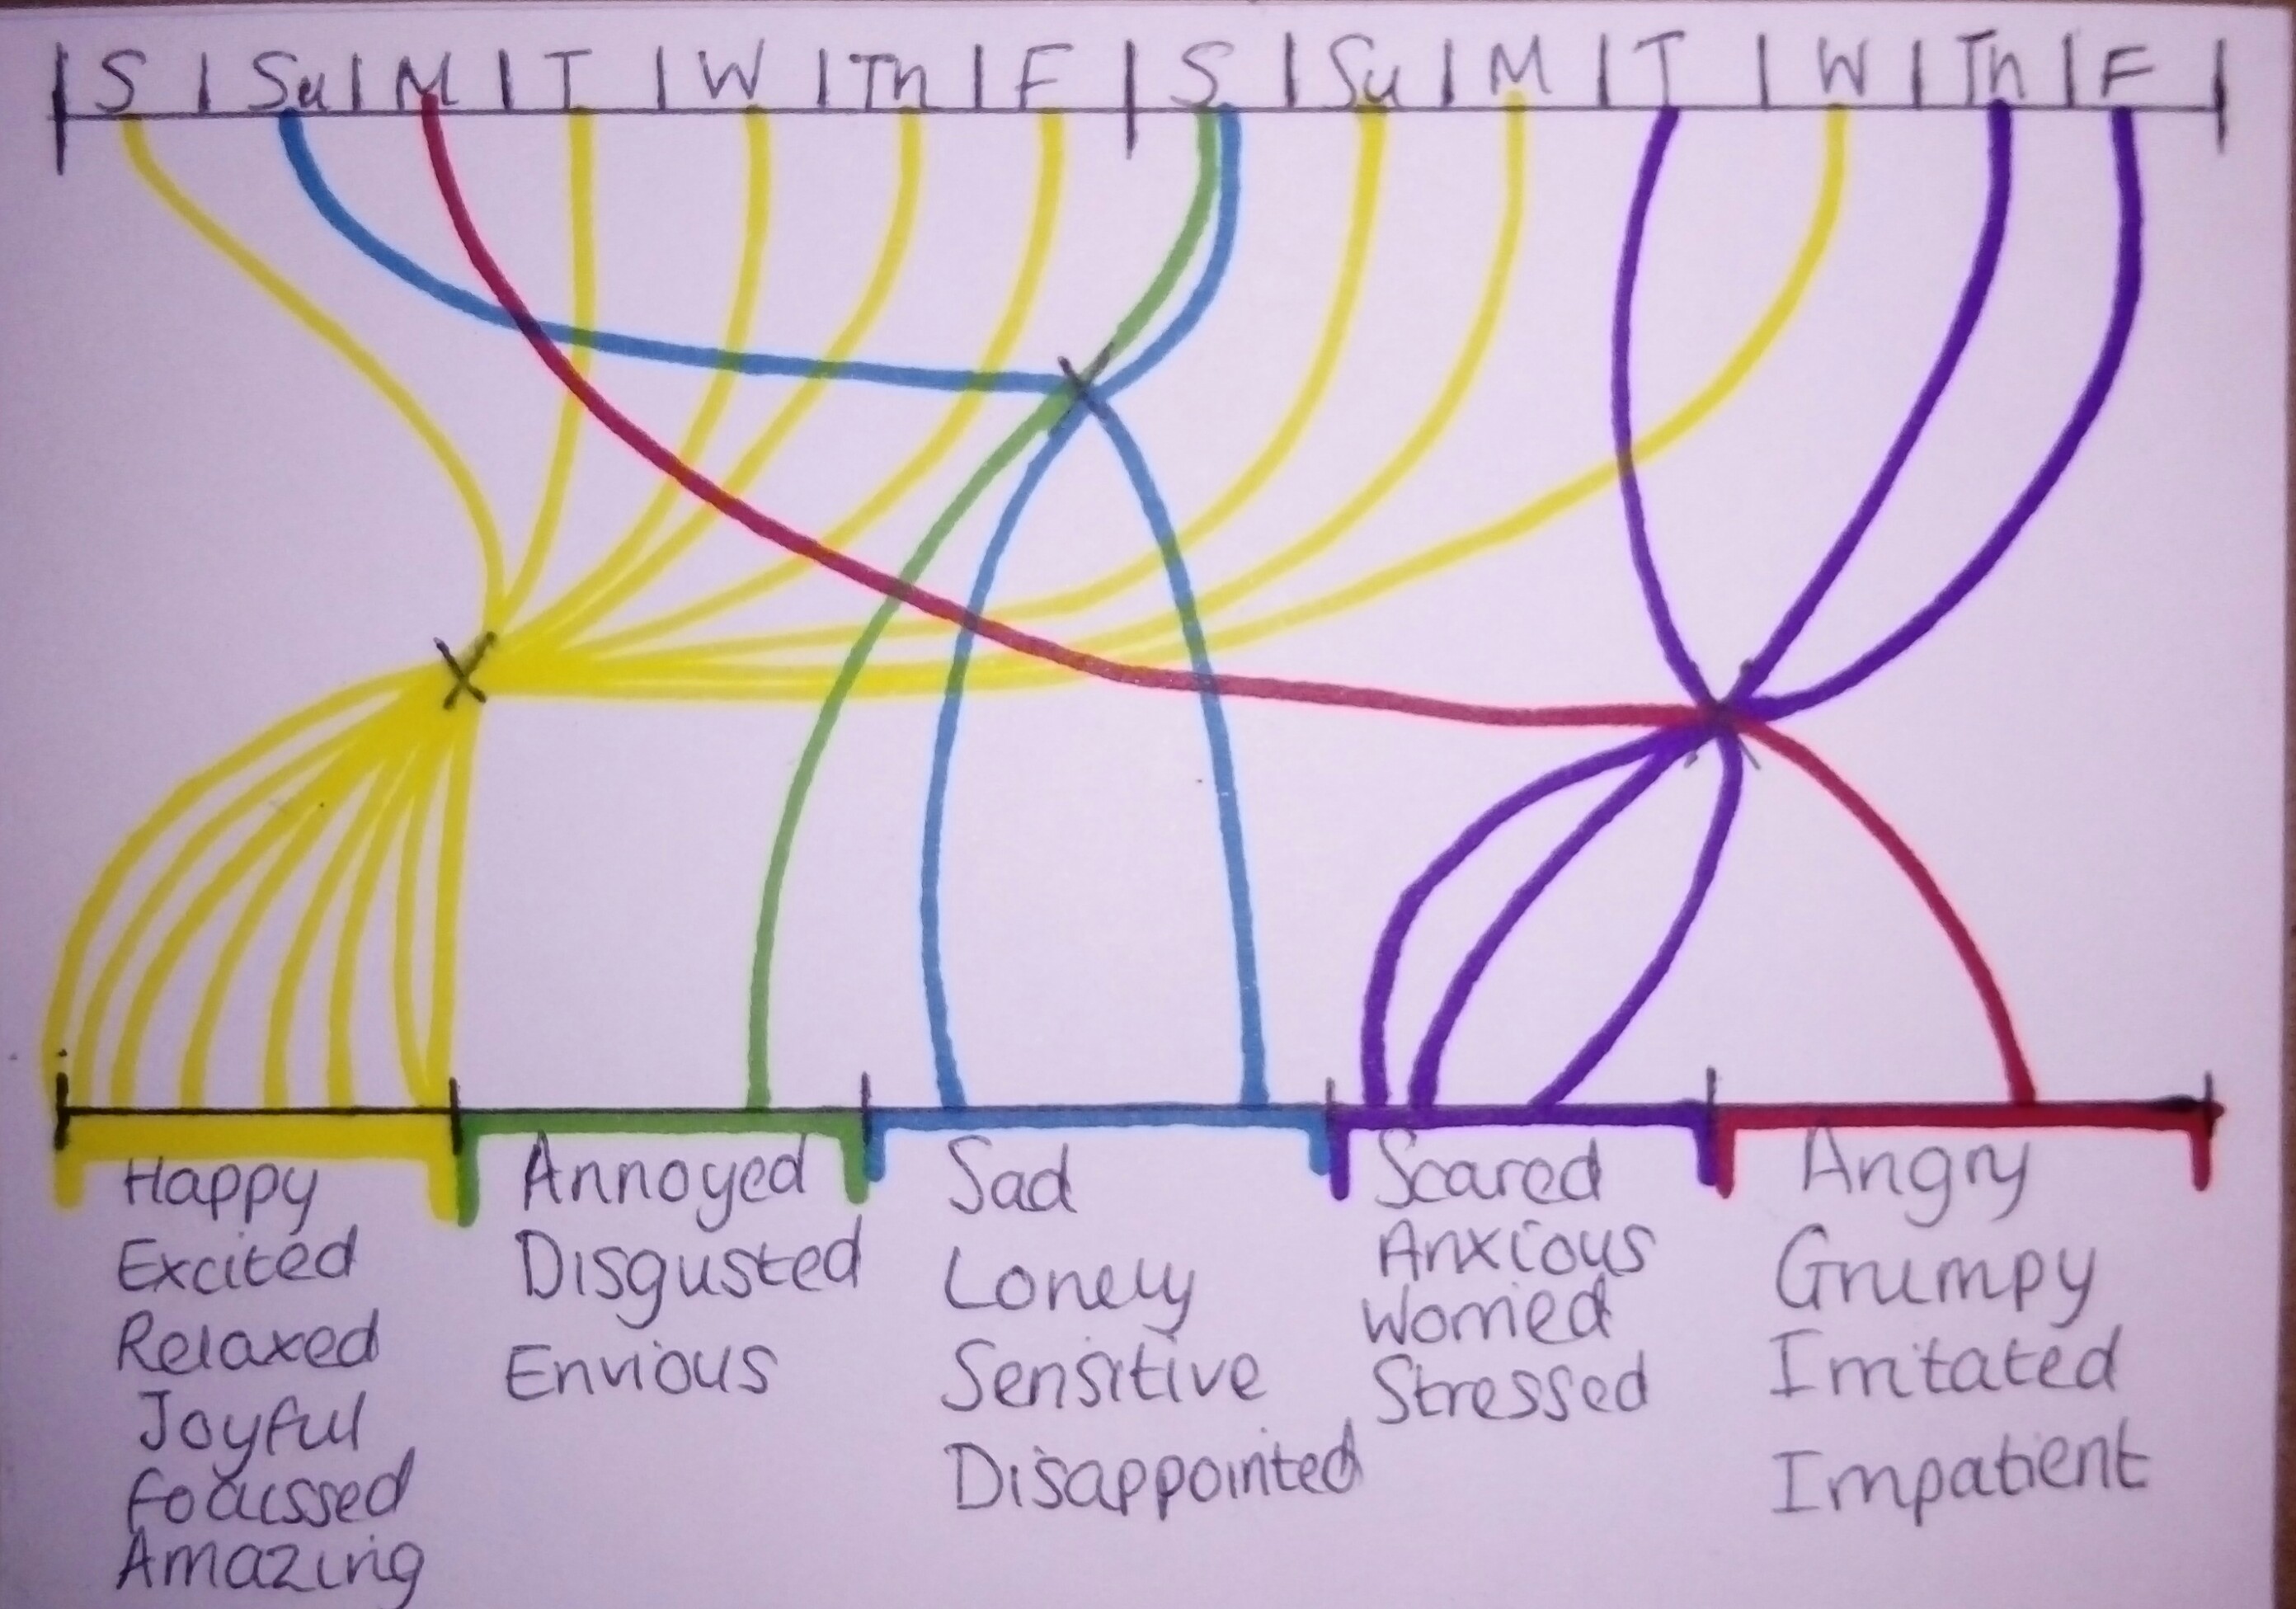 S Su M T W Th F S Su M T W Th F
Happy
Excited
Relaxed
Joyful
Focussed
Amazing
Annoyed
Disgusted
Envious
Sad
Lonely
Sensitive
Disappointed
Scared
Anxious
Worried
Stressed
Angry
Grumpy
Irritated
Impatient